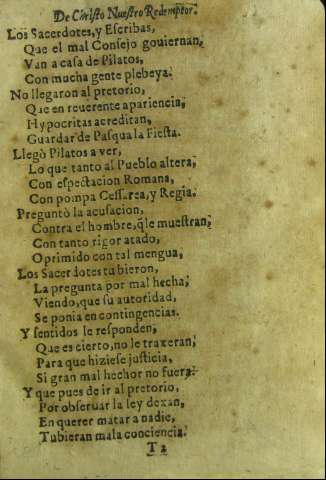 De Christo Nuestro Redemptor.
Los Sacerdotes, y Escribas,
Que el mal Consejo gouiernan,
Van a casa de Pilatos,
Con mucha gente plebeya.
No llegaron al pretorio,
Que en reuerente apariencia,
Hypocritas acreditan,
Guardar de Pasqua la Fiesta.
Llegò Pilatos a ver,
Lo que tanto al Pueblo altera,
Con espectacion Romana,
Con pompa Cessarea, y Regia.
Preguntò la acusacion,
Contra el hombre, q̃ le muestran,
Con tanto rigor atado,
Oprimido con tal mengua,
Los Sacerdotes tubieron,
La pregunta por mal hecha,
Viendo, que su autoridad,
Se ponia en contingencias.
Y sentidos le responden,
Que es cierto, no le traxeran,
Para que hiziese justicia,
Si gran mal hechor no fuera:
Y que pues de ir al pretorio,
Por obseruar la ley dexan,
En querer matar a nadie,
Tubieran mala conciencia.
T 2